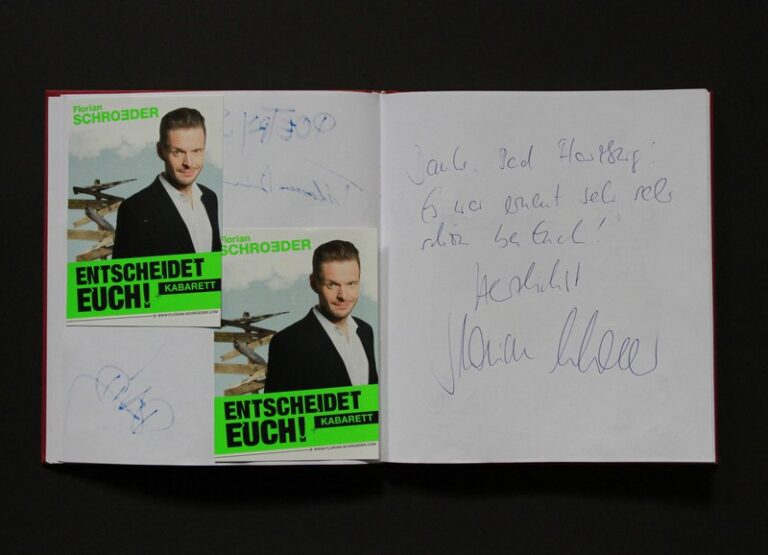 Florian
SCHROEDER
ENTSCHEIDET
EUCH!
KABARETT
WWW.FLORIAN-SCHROEDER.COM
Florian
SCHROEDER
ENTSCHEIDET
EUCH!
KABARETT
WWW.FLORIAN-SCHROEDER.COM
POETRY S
Danke, Bad Hersfeld!
Es war erneut sehr sehr
schön bei Euch!
Herzlichst
Florian Schroeder